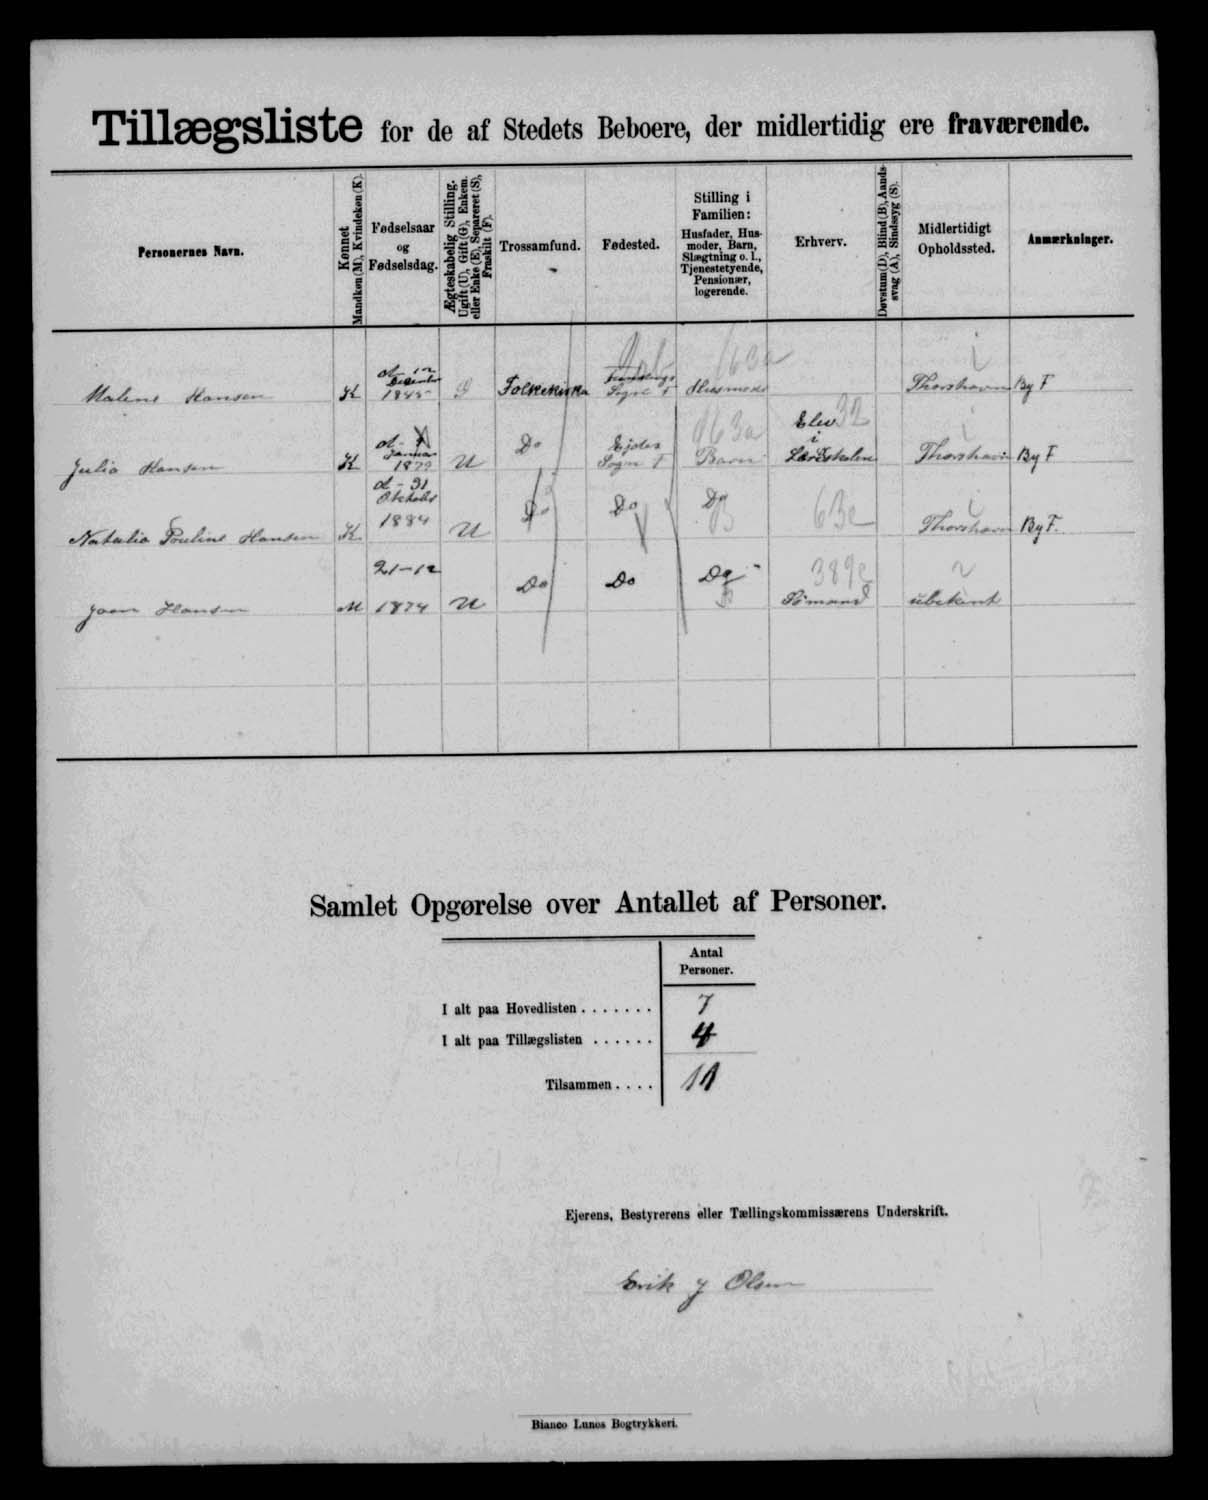 Tillægsliste for de af Stedets Beboere, der midlertidig ere fraværende.
Personernes Navn.
Kønnet
Mandkøn (M), Kvindekøn (K).
Fødselsaar
og
Fødselsdag.
Ægteskabelig Stilling.
Ugift (U), Gift (G), Enkem.
eller Enke (E), Separeret (S),
Fraskilt (F).
Trossamfund.
Fødested.
Stilling i
Familien:
Husfader, Hus-
moder, Barn,
Slægtning o. l.,
Tjenestetyende,
Pensionær,
logerende.
Erhverv.
Døvstum (D), Blind (B), Aands-
svag (A), Sindssyg (S).
Midlertidigt
Opholdssted.
Anmærkninger.
Malene Hansen K d. 12 December 1845 G Folkekirke Sogn F Husmoder 163a Thorshavn By F
Julia Hansen K Januar 1879 U Do Ejdes Sogn F Barn 163a Elev i Læreskolen 32 Thorshavn By F
Natalia Pouline Hansen K d - 31 Oktober 1884 U Do Do Do 63e Thorshavn By F.
Joen Hansen M 21-12 1874 U Do Do Do Sömand 389e ubekent
Samlet Opgørelse over Antallet af Personer.
Antal
Personer.
I alt paa Hovedlisten . . . . . . . 7
I alt paa Tillægslisten . . . . . . 4
Tilsammen . . . . 11
Ejerens, Bestyrerens eller Tællingskommissærens Underskrift.
Erik J Olsen
Bianco Lunos Bogtrykkeri.